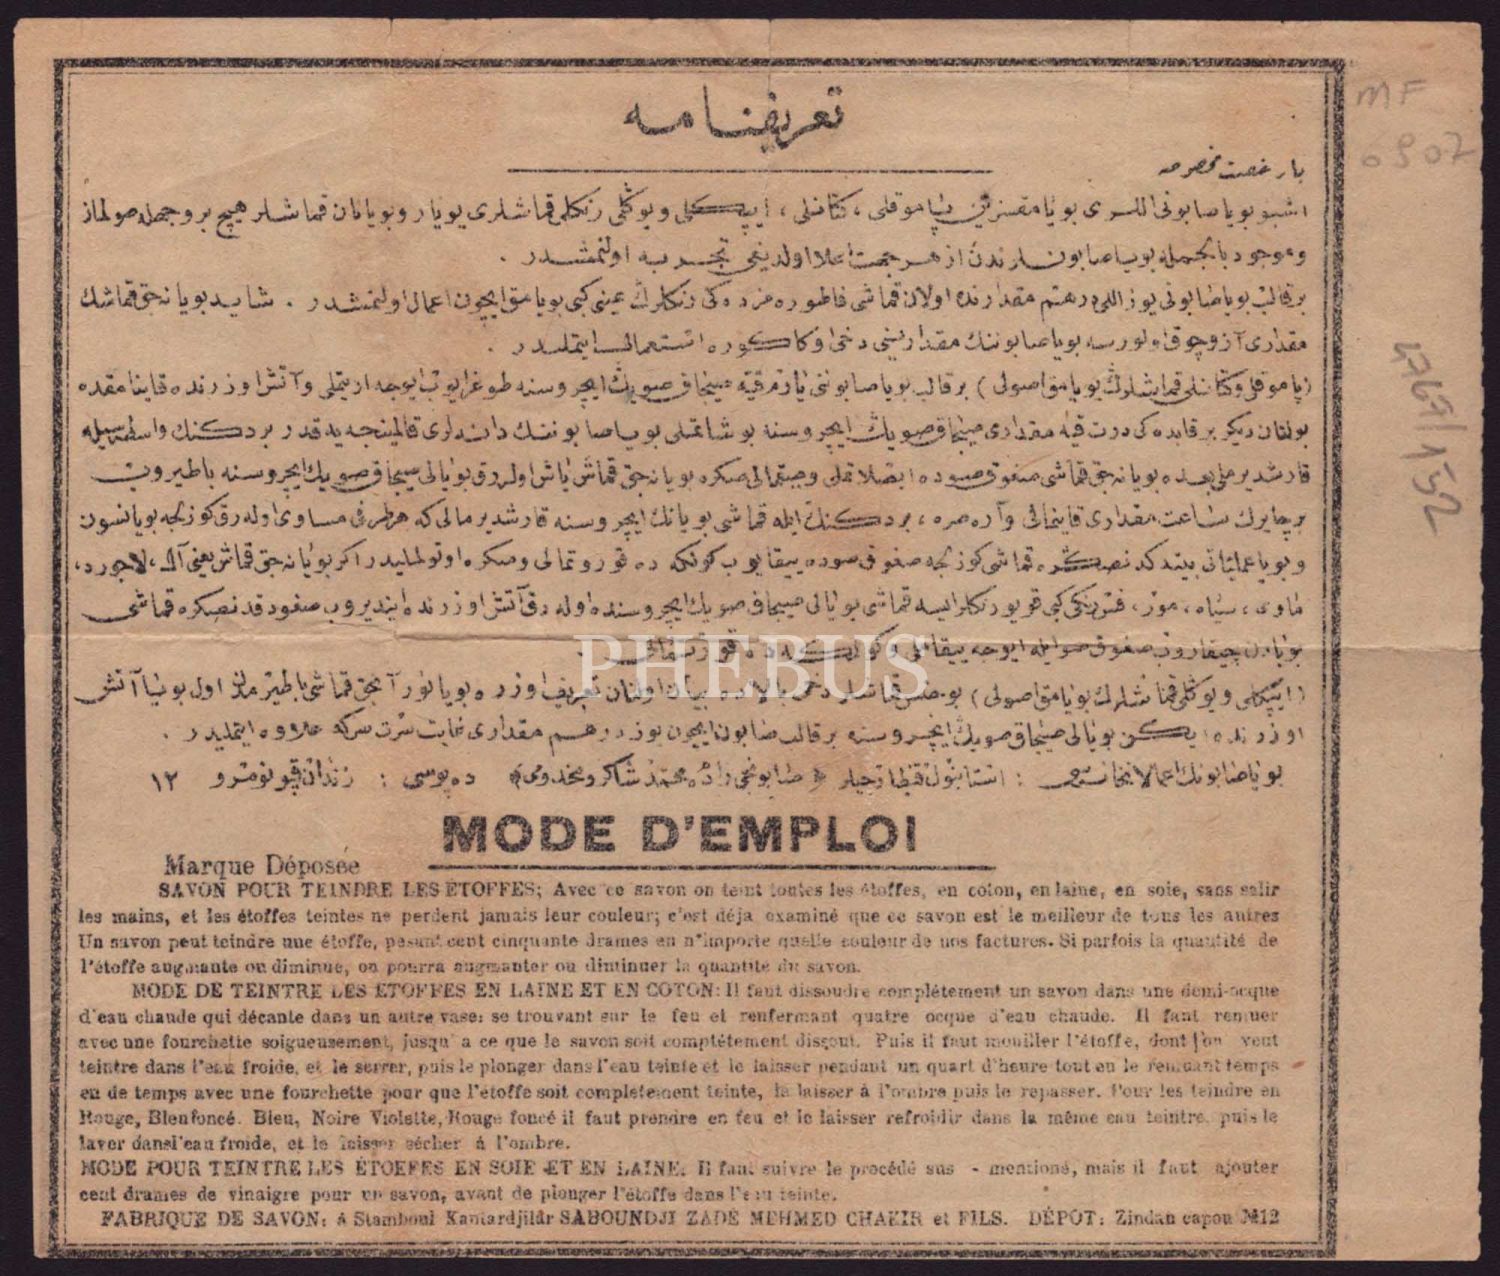 تعریفنامه
با رخصت مخصوصه
اشبو بویا صابونی اللری بویامقسزین پاموقلی ، کتانلی ، ایپکلی و یوکلی رنکلی قماشلری بویار و بویانان قماشلر هیچ بر وجهله صولماز
و موجود بالجمله بویا صابونلرندن از هر جهت اعلا اولدیغی تجربه اولنمشدر .
بر قالب بویا صابونی یوز اللی درهم مقدارنده اولان قماشی فاطوره مزده کی رنکلرك عینی کبی بویامق ایچون اعمال اولنمشدر . شاید بویانه جق قماشك
مقداری آز و چوق اولورسه بویا صابوننك مقدارینی دخی اوکا کوره استعمال ایتملیدر .
(پاموقلی و کتانلی قماشلرك بویامق اصولی) بر قالب بویا صابونی یارم قیه صیجاق صویك ایچروسنه طوغرایوب ایوجه اریتملی و آتش اوزرنده قاینامقده
بولنان دیکر بر قابده کی درت قیه مقداری صیجاق صویك ایچروسنه بوشاتملی بویا صابوننك دانه لری قالمینجه یه قدر بر دکنك واسطه سیله
قارشدیرملی بعده بویانه جق قماشی صغوق صوده ایصلاتملی و صقمالی صکره بویانه جق قماش یاش اوله رق بویالی صیجاق صویك ایچروسنه باطیروب
بر چاریك ساعت مقداری قاینمالی و آره صره ، بر دکنك ایله قماشی بویانك ایچروسنه قارشدیرمالی که هر طرفی مساوی اوله رق کوزلجه بویانسون
و بویا عملیاتی بیتدکدنصکره قماشی کوزلجه صغوق صوده ییقایوب کولکه ده قوروتمالی و صکره اوتولملیدر اکر بویانه جق قماش یعنی آل ، لاجورد ،
ماوی ، سیاه ، مور ، فس رنکی کبی قویو رنکلر ایسه قماشی بویالی صیجاق صویك ایچروسنده اوله رق آتش اوزرنده ایندیروب صغودقدنصکره قماشی
بویادن چیقاروب صغوق صو ایله ایوجه ییقاملی و کولکه ده قوروتمالی .
(ایپکلی و یوکلی قماشلرك بویامق اصولی) بو جنس قماشلر دخی بالاده بیان اولنان تعریف اوزره بویانور آنجق قماشی باطیرمازدن اول بویا آتش
اوزرنده ایکن بویالی صیجاق صویك ایچروسنه بر قالب صابون ایچون یوز درهم مقداری غایت سرت سرکه علاوه ایتملیدر .
بویا صابونك اعمالاتخانه سی : استانبول قنطارجیلر «صابونجی زاده محمد شاکر و مخدومی» ده پوسی : زندان قپو نومرو ١٢
MODE D'EMPLOI
Marque Déposée
SAVON POUR TEINDRE LES ETOFFES; Avec ce savon on teint toutes les étoffes, en coton, en laine, en soie, sans salir
les mains, et les étoffes teintes ne perdent jamais leur couleur; c'est déja examiné que ce savon est le meilleur de tous les autres
Un savon peut teindre une étoffe, pesant cent cinquante drames en n'importe quelle couleur de nos factures. Si parfois la quantité de
l'étoffe augmante ou diminue, on pourra augmanter ou diminuer la quantité du savon.
MODE DE TEINTRE LES ETOFFES EN LAINE ET EN COTON: Il faut dissoudre complétement un savon dans une demi-ocque
d'eau chaude qui décante dans un autre vase: se trouvant sur le feu et renfermant quatre ocque d'eau chaude. Il faut remuer
avec une fourchette soigueusement, jusqu' a ce que le savon soit complétement dissout. Puis il faut mouiller l'étoffe, dont j'on veut
teintre dans l'eau froide, et le serrer, puis le plonger dans l'eau teinte et le laisser pendant un quart d'heure tout en le remuant temps
en de temps avec une fourchette pour que l'étoffe soit completement teinte, la laisser á l'ombre puis le repasser. Pour les teindre en
Rouge, Bleufoncé. Bleu, Noire Violette, Rouge foncé il faut prendre en feu et le laisser refroidir dans la même eau teintre, puis le
laver dansl'eau froide, et le laisser sécher á l'ombre.
MODE POUR TEINTRE LES ÉTOEFES EN SOIE ET EN LAINE. Il faut suivre le procédé sus - mentioné, mais il faut ajouter
cent drames de vinaigre pour un savon, avant de plonger l'étoffe dans l'eau teinte.
FABRIQUE DE SAVON: á Stamboul Kantardjilàr SABOUNDJI ZADÉ MEHMED CHAKIR et FILS. DÉPOT: Zindan capou №12
MF
6907
4769/152
PHEBUS